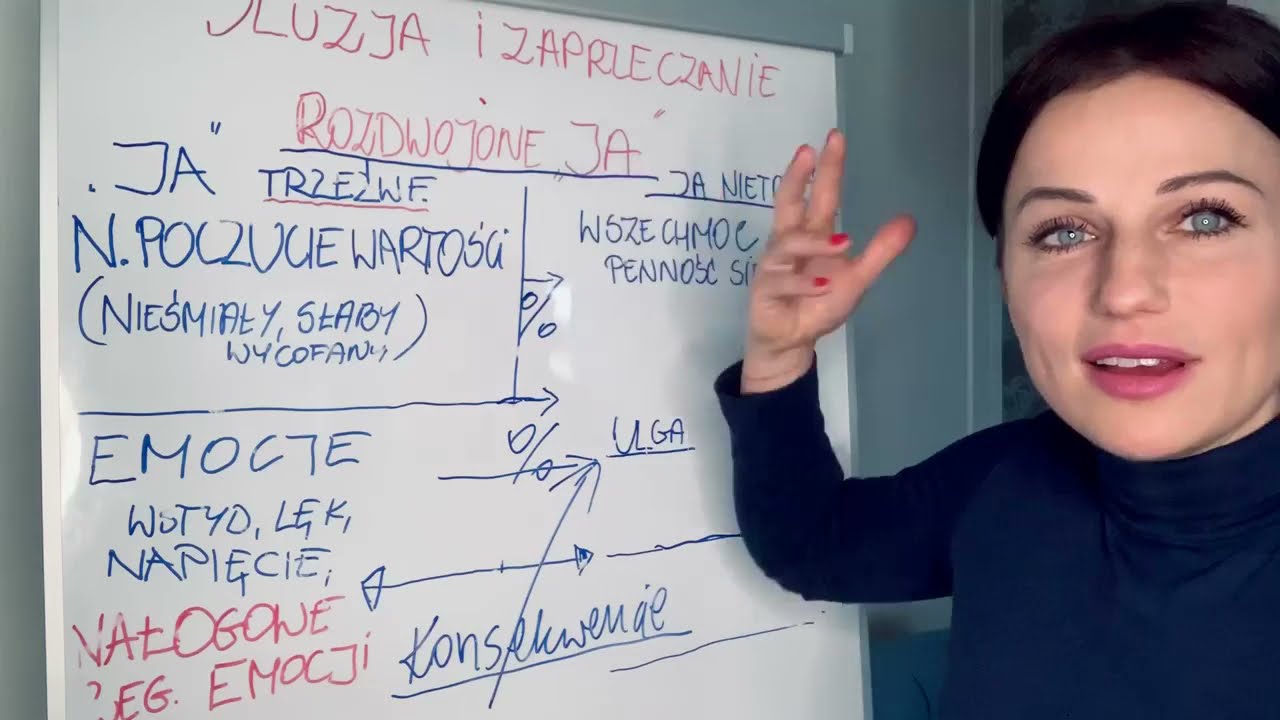 ILUZJA i ZAPRZECZANIE
ROZDWOJONE „JA"
„JA" TRZEŹWE.
JA NIETRZ
N. POCZUCIE WARTOŚCI
(NIEŚMIAŁY, SŁABY
WYCOFANY)
WSZECHMOC
PEWNOŚĆ SIE
%
EMOCJE
%
ULGA
WSTYD, LĘK,
NAPIĘCIE,
NAŁOGOWE
REG. EMOCJI
Konsekwencje